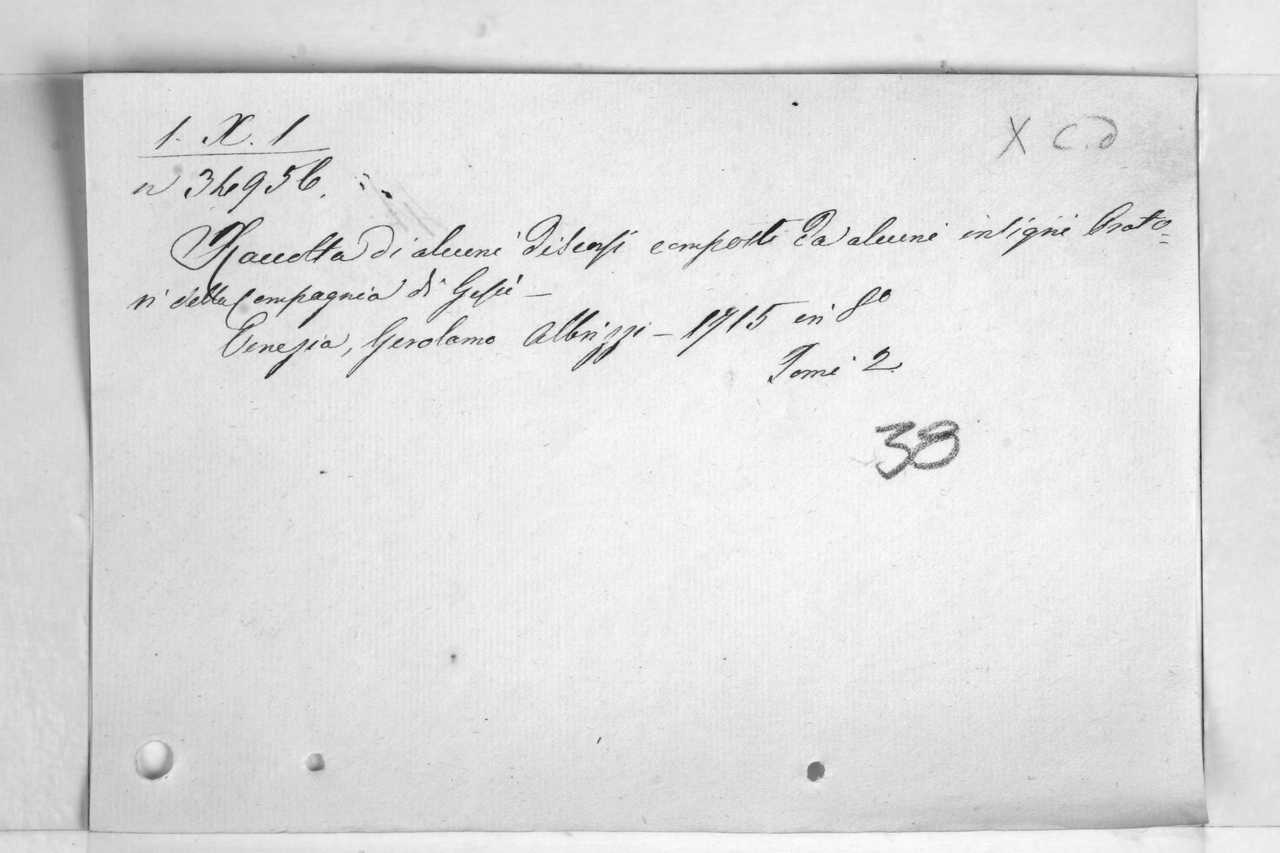 1. X. 1
X C.D
n 34956.
Raccolta di alcuni discorsi composti da alcuni insigni Orato=
ri della Compagnia di Gesù —
Venezia, Gerolamo Albrizzi — 1715 in 8º
Tomi 2.
38